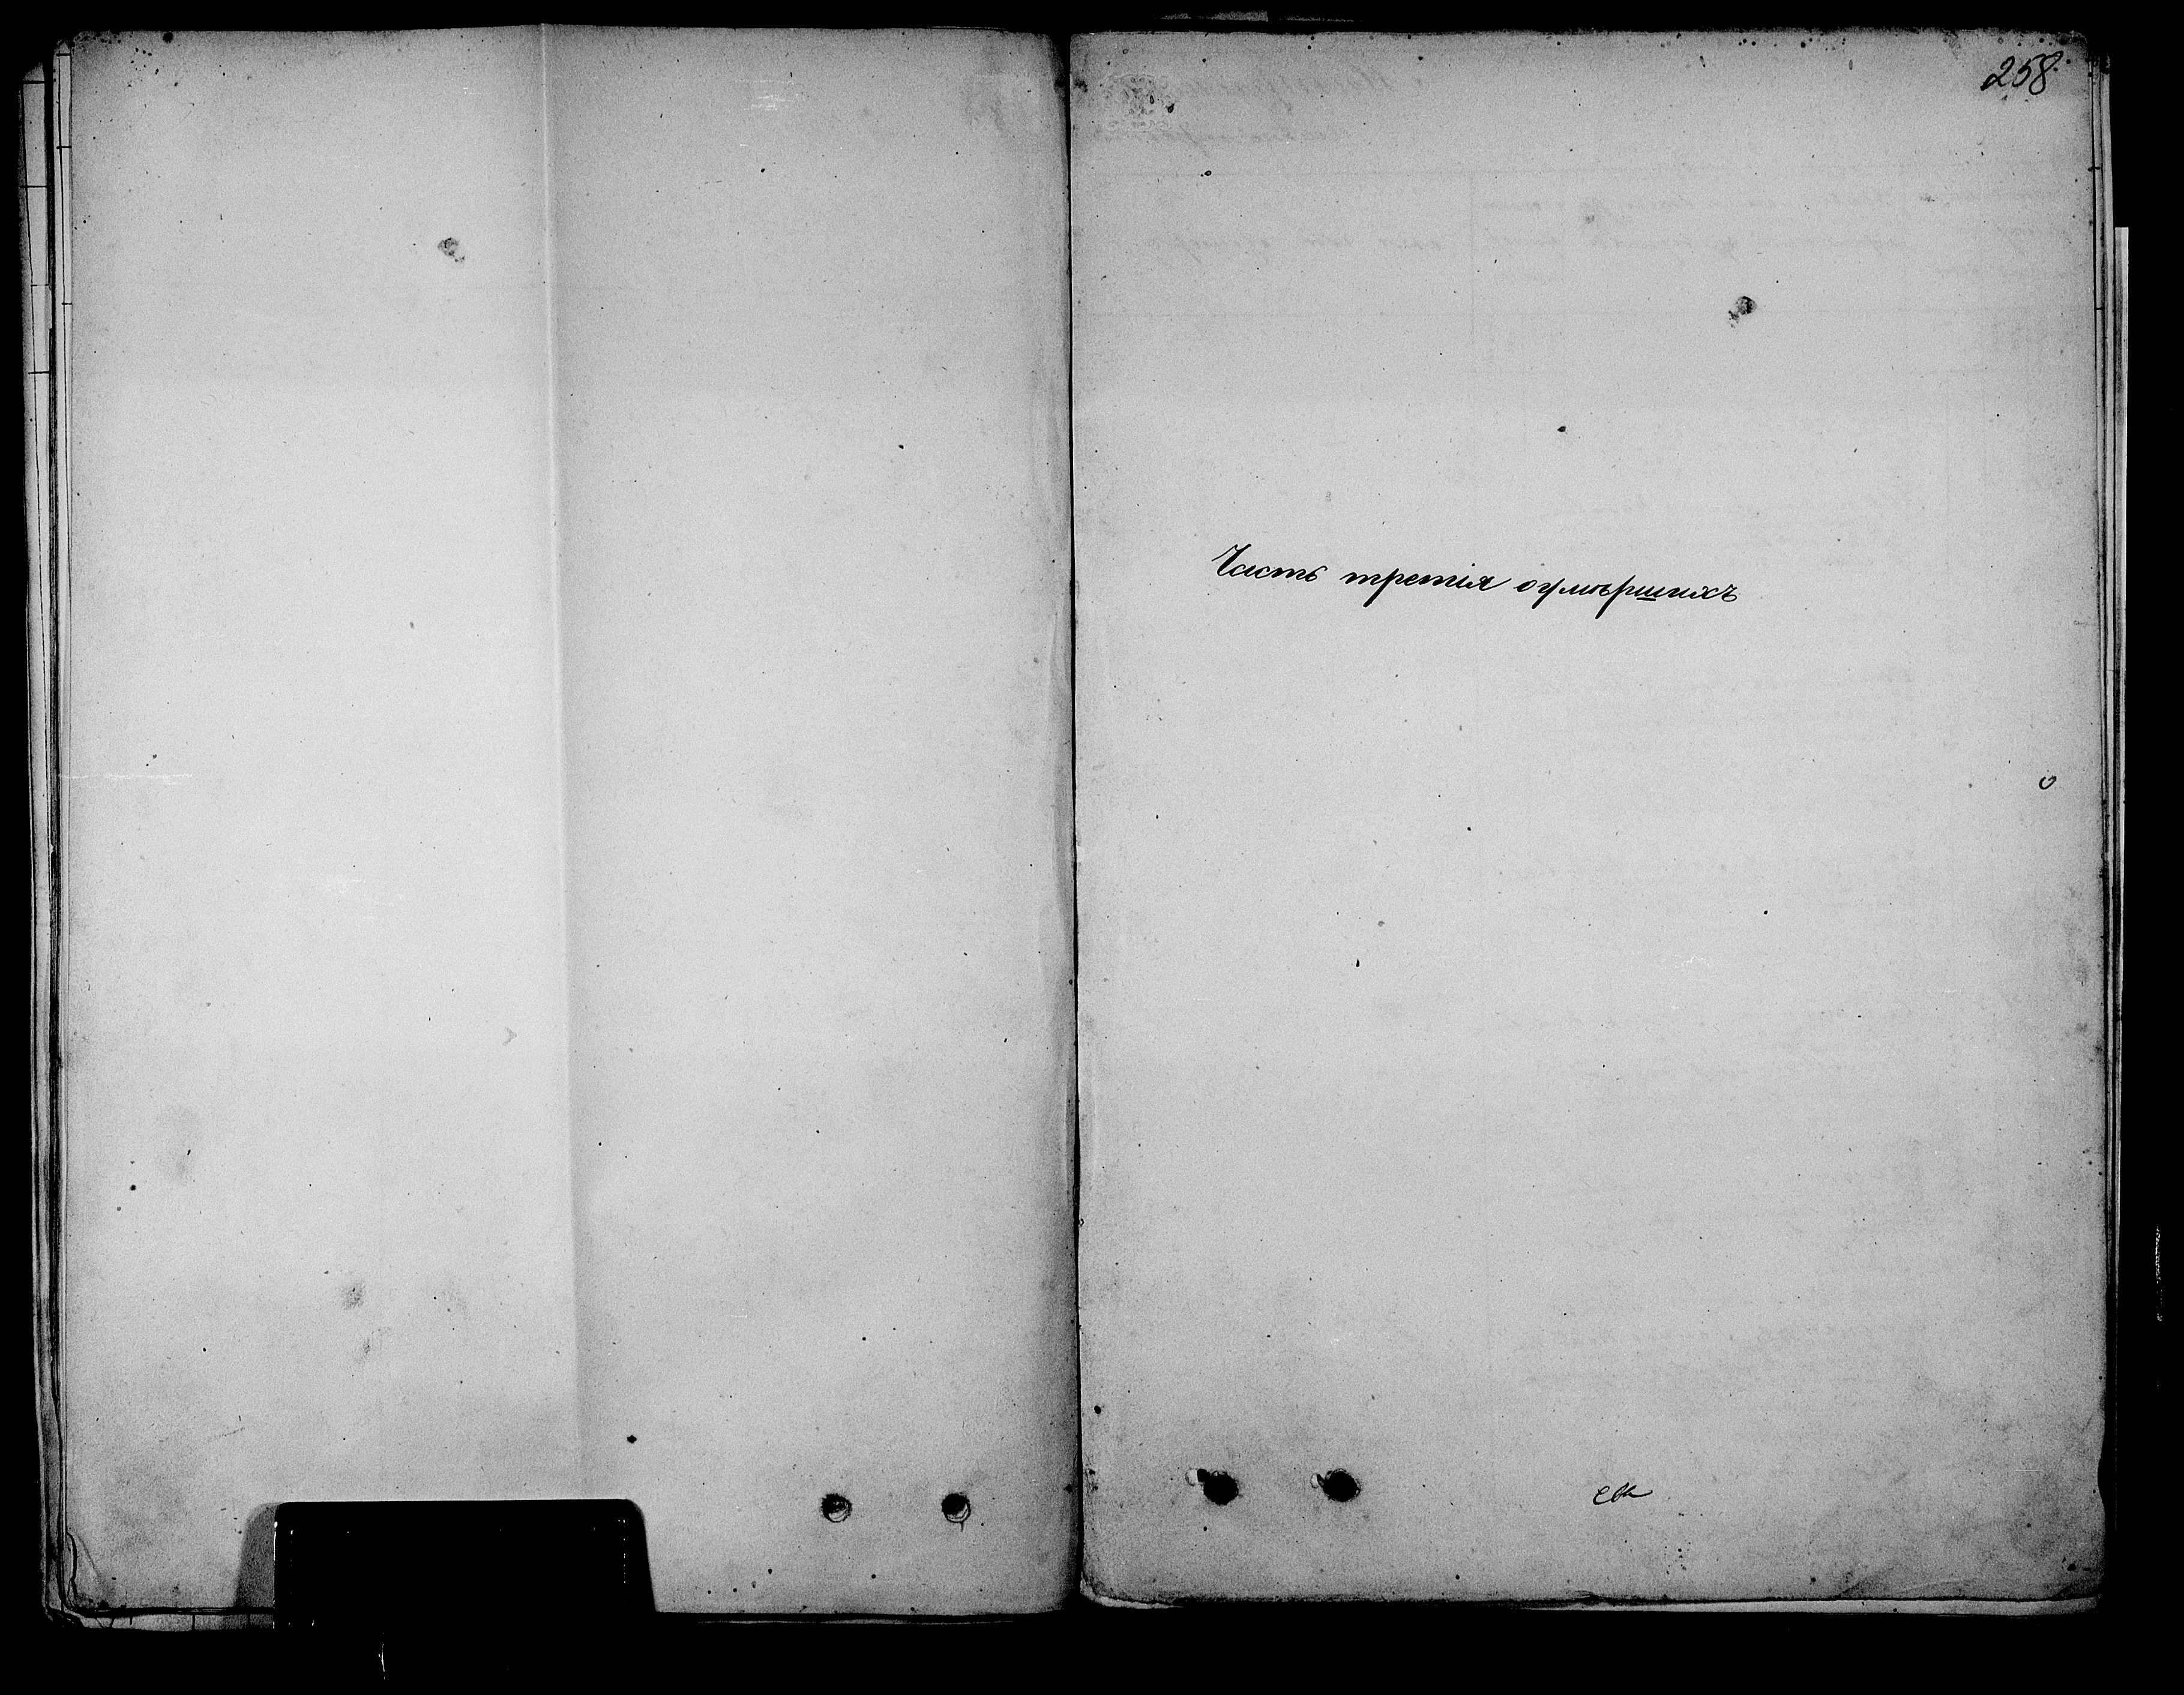 258
Часть третія оумѣршихъ